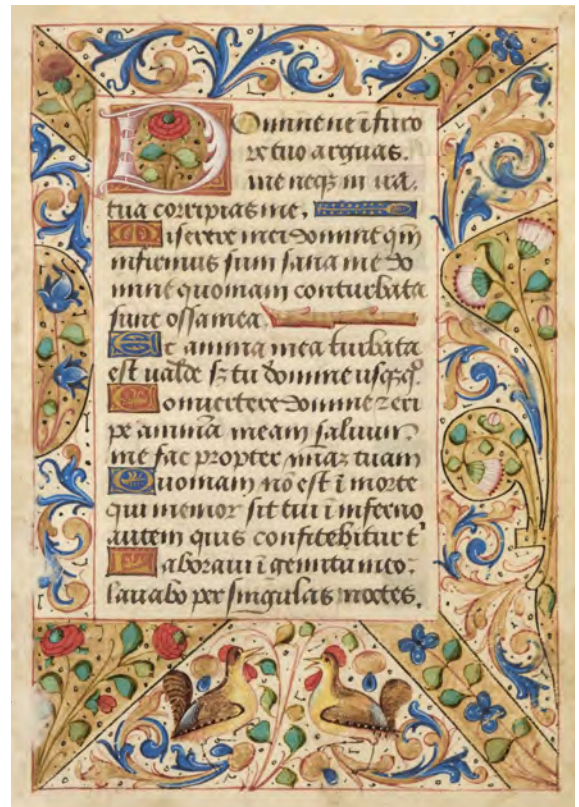 Domine ne ĩ furo
re tuo arguas.
me neqz in ira.
tua corripias me.
Miserere mei domine qm̃
infirmus sum sana me do
mine quoniam conturbata
sunt ossa mea.
Et anima mea turbata
est ualde sz tu domine usqzq̃.
Conuertere domine z eri
pe animã meam saluum.
me fac propter miãz tuam
Quoniam nõ est ĩ morte
qui memor sit tui ĩ inferno
autem quis confitebitur t'
Laboraui ĩ gemitu meo.
lauabo per singulas noctes.